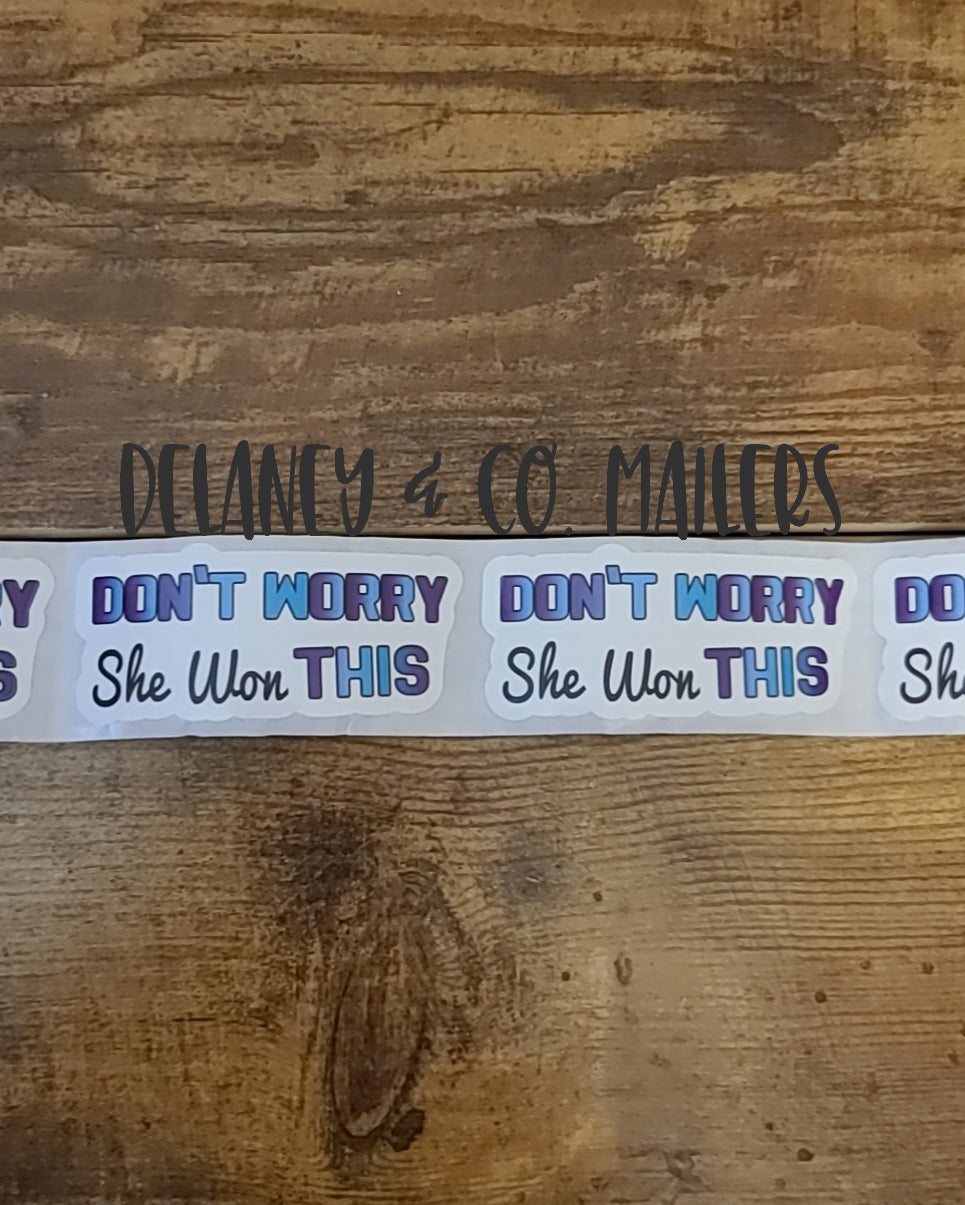 DELANEY & CO. MAILERS
RY DON'T WORRY DON'T WORRY DO
S She Won THIS She Won THIS Sh